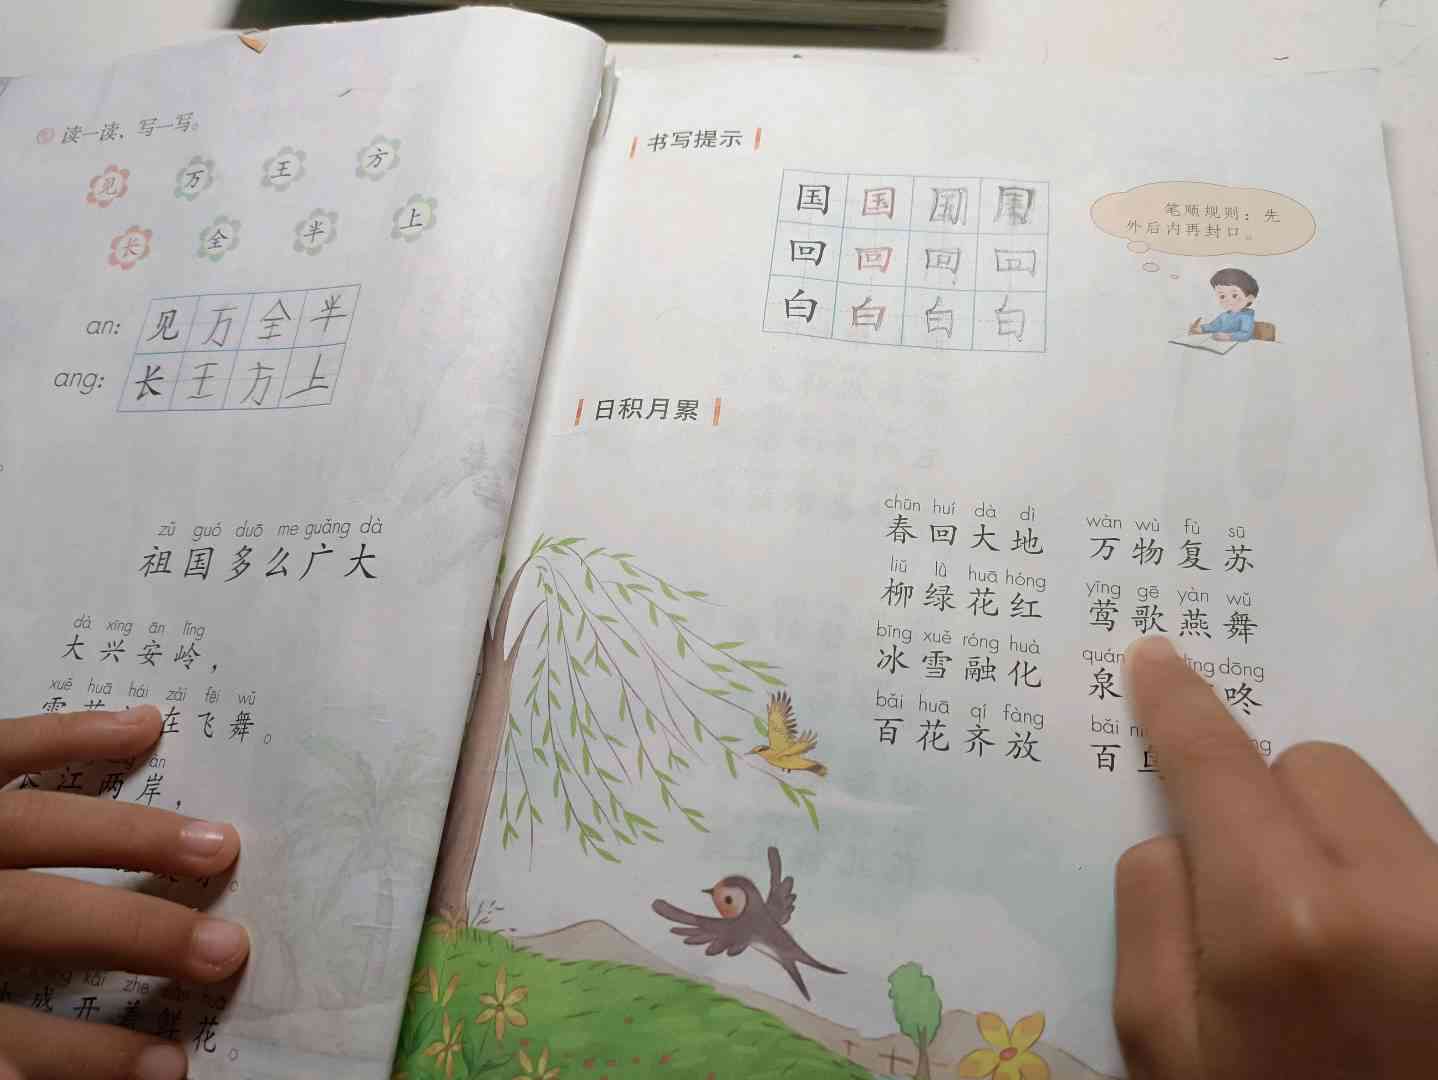 读一读，写一写。
见 万 王 方
长 全 半 上
an： 见 万 全 半
ang： 长 王 方 上
zǔ guó duō me guǎng dà
祖国多么广大
dà xīng ān lǐng
大兴安岭，
xuě huā hái zài fēi wǔ
雪花 在飞舞。
江两岸，
kāi zhe xiān huā
开着鲜花。
书写提示
国 国 国 国
回 回 回 回
白 白 白 白
笔顺规则：先
外后内再封口。
日积月累
chūn huí dà dì wàn wù fù sū
春回大地 万物复苏
liǔ lǜ huā hóng yīng gē yàn wǔ
柳绿花红 莺歌燕舞
bīng xuě róng huà quán dīng dōng
冰雪融化 泉 咚
bǎi huā qí fàng bǎi
百花齐放 百